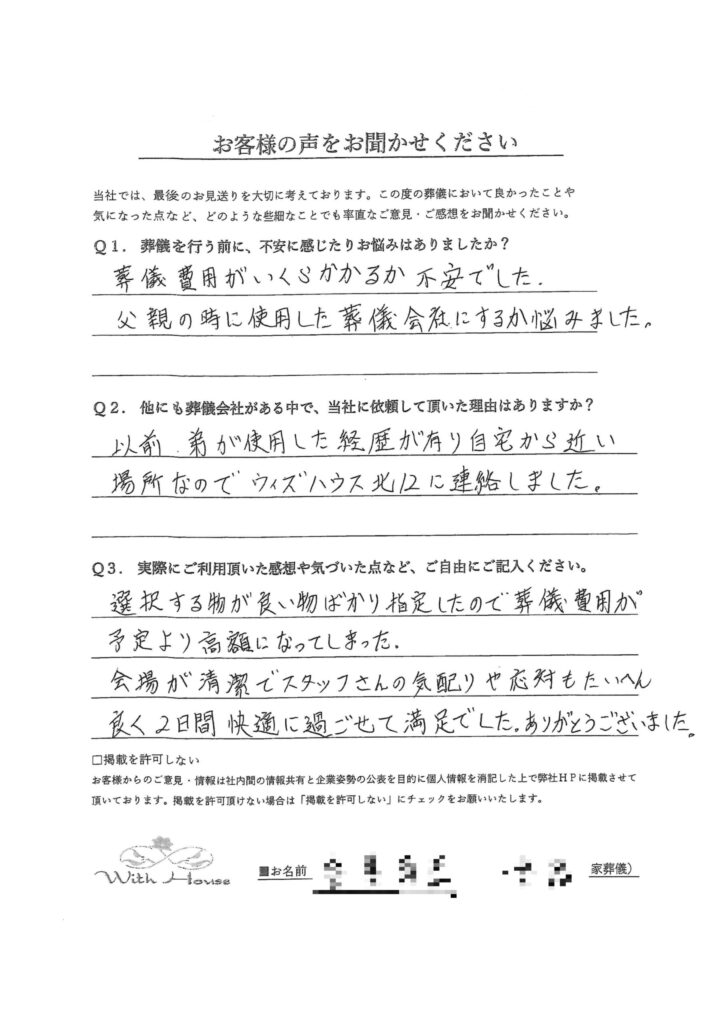 お客様の声をお聞かせください
当社では、最後のお見送りを大切に考えております。この度の葬儀において良かったことや
気になった点など、どのような些細なことでも率直なご意見・ご感想をお聞かせください。
Q1. 葬儀を行う前に、不安に感じたりお悩みはありましたか？
葬儀費用がいくらかかるか不安でした.
父親の時に使用した葬儀会社にするか悩みました。
Q2. 他にも葬儀会社がある中で、当社に依頼して頂いた理由はありますか？
以前 弟が使用した経歴が有り自宅から近い
場所なのでウィズハウス北12に連絡しました。
Q3. 実際にご利用頂いた感想や気づいた点など、ご自由にご記入ください。
選択する物が良い物ばかり指定したので葬儀費用が
予定より高額になってしまった.
会場が清潔でスタッフさんの気配りや応対もたいへん
良く2日間快適に過ごせて満足でした。ありがとうございました。
□掲載を許可しない
お客様からのご意見・情報は社内間の情報共有と企業姿勢の公表を目的に個人情報を消記した上で弊社HPに掲載させて
頂いております。掲載を許可頂けない場合は「掲載を許可しない」にチェックをお願いいたします。
With House
■お名前 家葬儀）